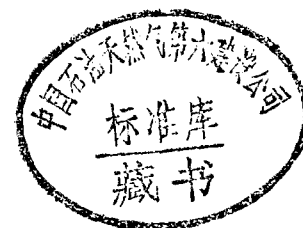 中国石油天然气第六建设公司
标准库
藏书